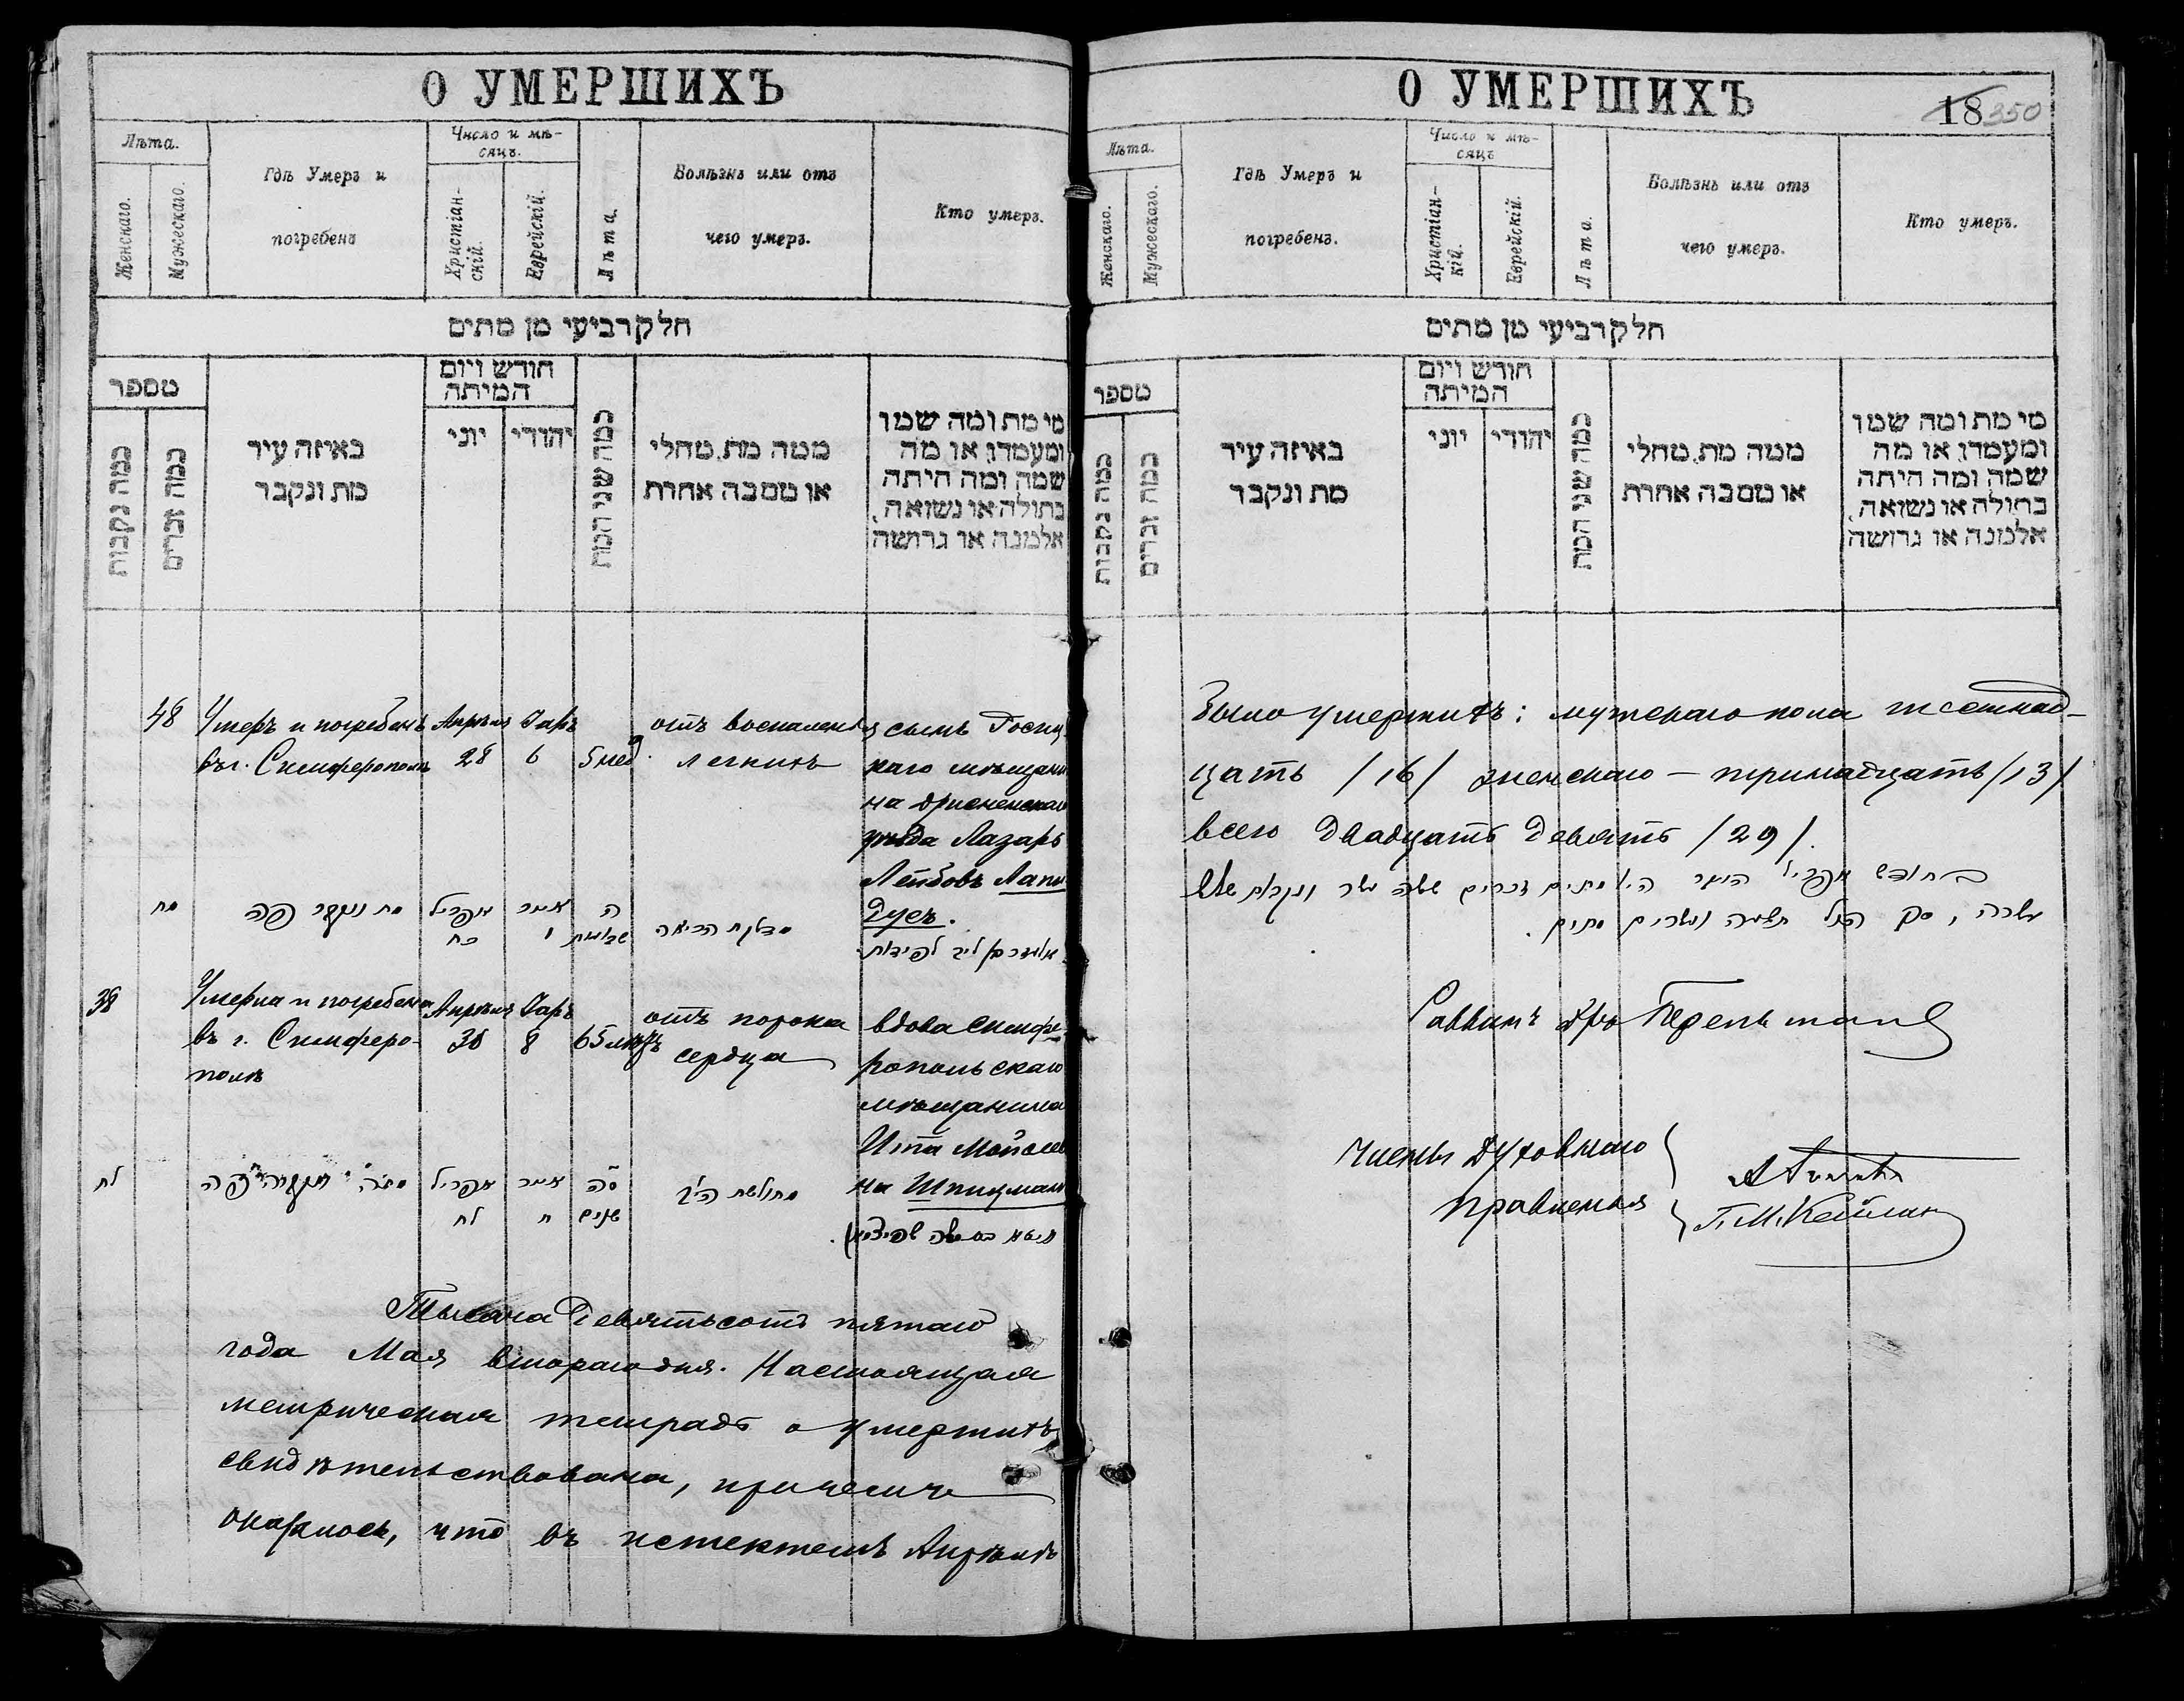 О УМЕРШИХЪ
Лѣта.
Женскаго.
Мужескаго.
Гдѣ Умеръ и
погребенъ
Число и мѣ-
сяцъ.
Христіан-
скій.
Еврейскій.
Лѣта.
Болѣзнь или отъ
чего умеръ.
Кто умеръ.
חלק רביעי מן מתים
מספר
כמה נקבות
כמה זכרים
באיזה עיר
מת ונקבר
חודש ויום
המיתה
יוני
יהודי
כמה שני המת
ממה מת, מחלי
או מסבה אחרת
מי מת ומה שמו
ומעמדו, או מה
שמה ומה היתה
בתולה או נשואה,
אלמנה או גרושה
48
Умеръ и погребенъ
въ г. Симферополѣ
Апрѣля
28
Іаръ
6
5 нед.
отъ воспаленія
легкихъ
сынъ
каго мѣщани
на Дрисненскаго
уѣзда Лазарь
Лейбовъ Лапи
дусъ.
מח
מת ונקבר פה
אפריל
כח
אייר
ו
ה
שבועות
מדלקת הריאה
38
Умерла и погребена
въ г. Симферо-
полѣ
Апрѣля
30
Іаръ
8
65 лѣтъ
отъ порока
сердца
вдова симфе-
ропольскаго
мѣщанина
Ита Мойсее
на Шпицман
לח
אפריל
אייר
ח
סה
שנים
מחולשת הלב
Тысяча девятьсотъ пятаго
года Мая втораго дня. Настоящая
метрическая тетрадь о умершихъ
свидѣтельствована, причемъ
оказалось, что въ истекшемъ Апрѣлѣ
О УМЕРШИХЪ
18 350
Лѣта.
Женскаго.
Мужескаго.
Гдѣ Умеръ и
погребенъ.
Число и мѣ-
сяцъ
Христіан-
кій.
Еврейскій.
Лѣта.
Болѣзнь или отъ
чего умеръ.
Кто умеръ.
חלק רביעי מן מתים
מספר
כמה נקבות
כמה זכרים
באיזה עיר
מת ונקבר
חודש ויום
המיתה
יוני
יהודי
כמה שני המת
ממה מת, מחלי
או מסבה אחרת
מי מת ומה שמו
ומעמדו, או מה
שמה ומה היתה
בתולה או נשואה,
אלמנה או גרושה
Было умершихъ: мужскаго пола шестнад-
цать /16/ женскаго — тринадцать /13/
всего двадцать девять /29/.
בחודש אפריל העבר היו מתים זכרים ששה עשר ונקבות שלש
עשרה, סך הכל תשעה ועשרים מתים.
Раввинъ
Члены Духовнаго
Правленія